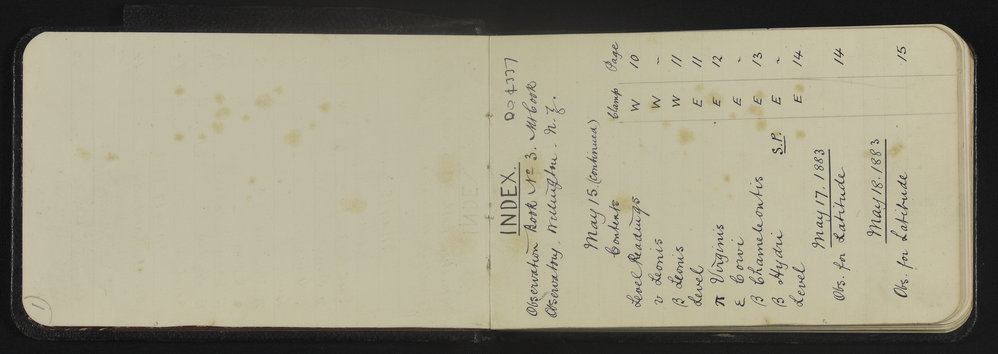 (1)
INDEX.
Observation Book No 3. Mt Cook
Observatory. Wellington. N.Z.
May 15 (continued)
Contents Clamp Page
Level Readings W 10
υ Leonis W "
β Leonis W 11
Level E 11
π Virginis E 12
ε Corvi E "
β Chameleontis E 13
β Hydri S.P. E "
Level E 14
May 17. 1883
Obs. for Latitude 14
May 18. 1883
Obs. for Latitude 15